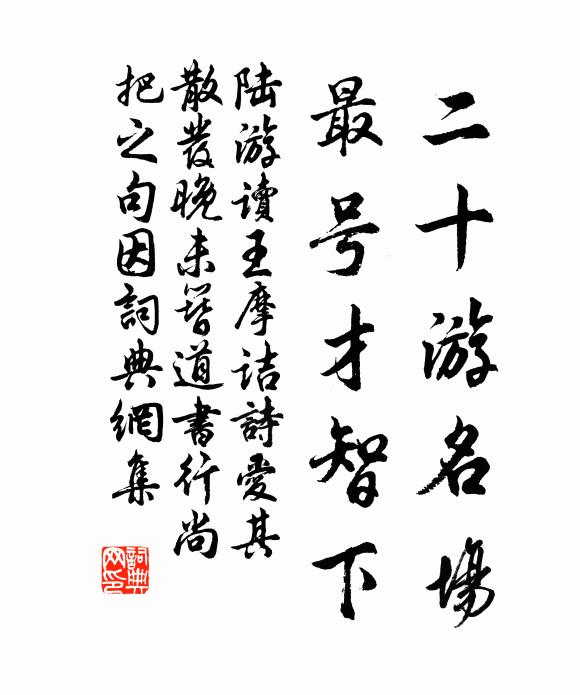 二十游名場
最号才智下
陆游讀王摩詰詩愛其
散發晚未簪道書行尚
把之句因詞典網集
詞典
网印